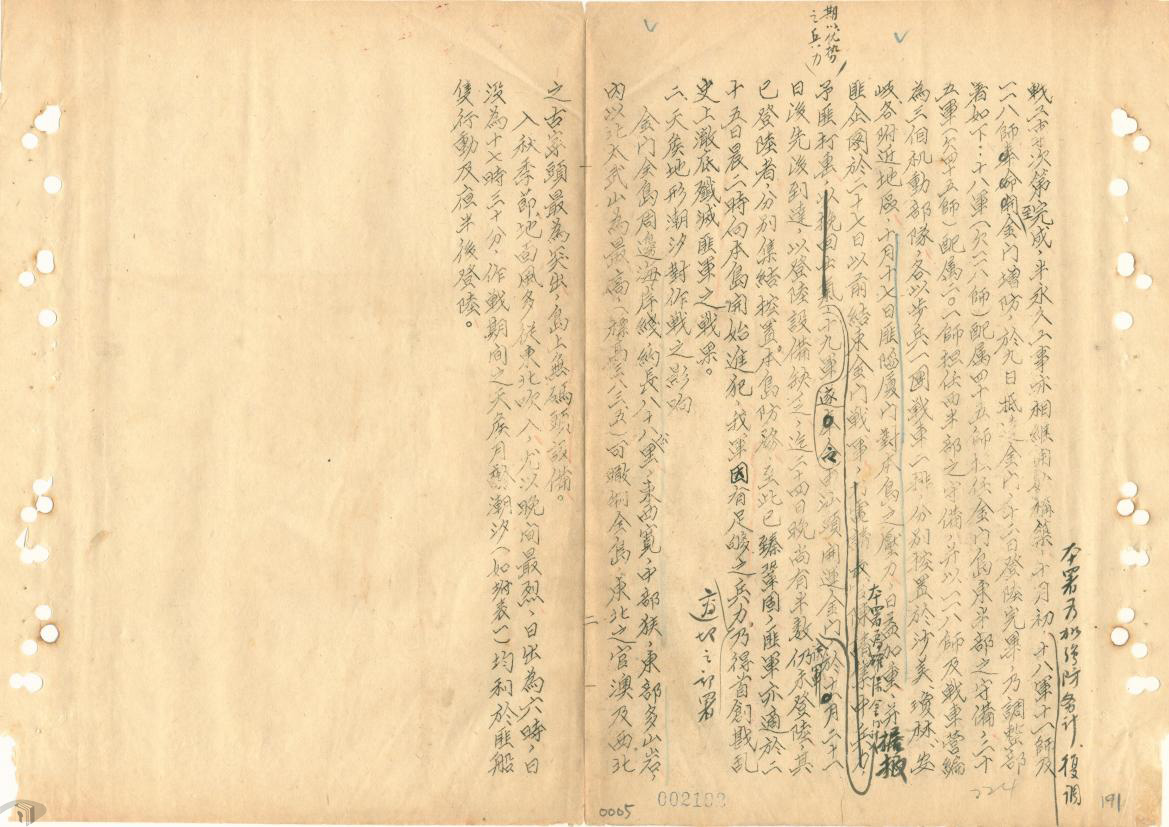 本署為加強防务计，復調
戰工事次第完成，半永久工事亦相繼開始構築，十月初，十八軍十一師及
一一八師至金門增防，於九日抵達金門，十二日登陸完畢，乃調整部
署如下：十八軍（欠一一八師）配属四十五師担任金門島東半部之守備，二十
五軍（欠四十五師）配属二〇一師担任西半部之守備，并以一一八師及戰車營編
為三個机動部隊，各以步兵一團戰車一排，分別控置於沙美、瓊林、安
岐各附近地區，十月十七日匪陷廈門，對本島之壓力，日益加重，并據报
匪企圖於二十七日以前結束金門戰事，
本署為確保金門
期以优势之兵力
予匪打击，以挽回士氣，十九軍遂
由汕頭開運金門，
該軍於十月二十一
日後先後到達，以登陸設備缺乏，迄二十四日晚尚有半數仍未登陸，其
已登陸者，分別集結控置，本島防務至此已臻鞏固，匪軍亦適於二
十五日晨二時向本島開始進犯，我軍因有足够之兵力
適切之部署
乃得首創戡乱
史上澈底殲滅匪軍之戰果。
二、天候地形潮汐對作戰之影响
金門全島周邊海岸綫，約長八十八里，東西寬，中部狹，東部多山岩，
內以北太武山為最高，（標高二八三五）可瞰制全島，東北之官澳及西北
之古寧頭最為突出，島上無碼頭設備。
入秋季節，地面風多從東北吹入，尤以晚间最烈，日出為六時，日
没為十七時三十分，作戰期间之天候月齡潮汐（如附表一）均利於匪船
隻行動及夜半後登陸。
二
224
191
0005
002192